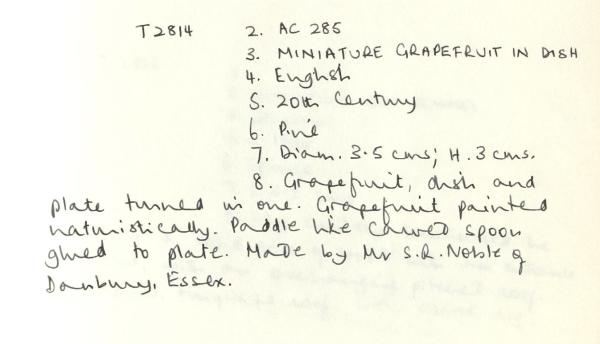 T2814 2. AC 285
3. MINIATURE GRAPEFRUIT IN DISH
4. English
5. 20th Century
6. Pine
7. Diam. 3.5 cms; H. 3 cms.
8. Grapefruit, dish and
plate turned in one. Grapefruit painted
naturistically. Paddle like carved spoon
glued to plate. Made by Mr S.R. Noble of
Danbury, Essex.